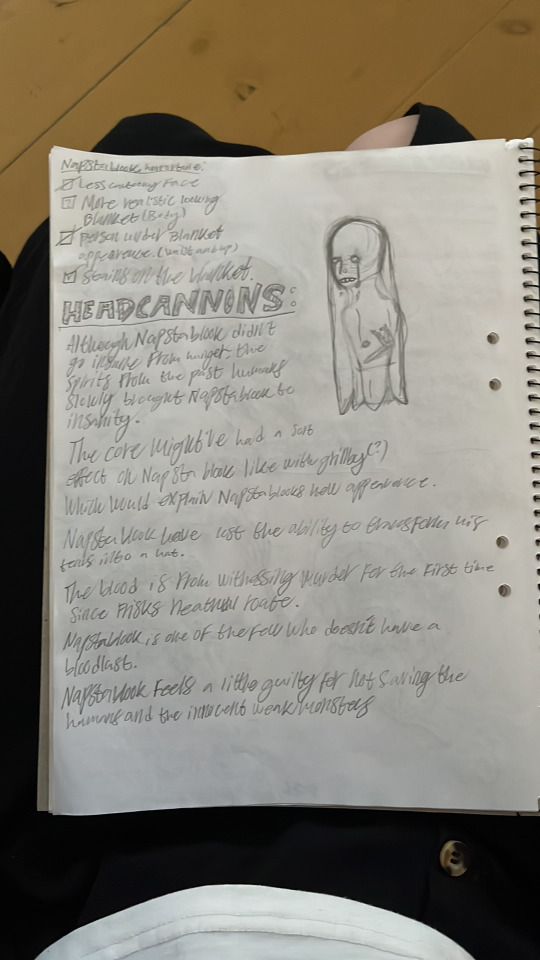 Napstablook horrortale:
Less cartoony face
More realistic looking
Blanket (Body)
Person under Blanket
appearence. (waist and up)
Stains on the blanket.
HEADCANNONS:
Although Napstablook didn't
go insane from hunger, the
spirits from the past humans
slowly brought Napstablook to
insanity.
The core might've had a sort
effect on Napstablook like with grillby(?)
Which would explain Napstablooks new appearence.
Napstablook have lost the ability to transform his
tears into a hat.
The blood is from witnessing murder for the first time
since Frisks neathrul roate.
Napstablook is one of the few who doesn't have a
bloodlast.
Napstablook feels a little guilty for not saving the
humans and the innocent weak monsters